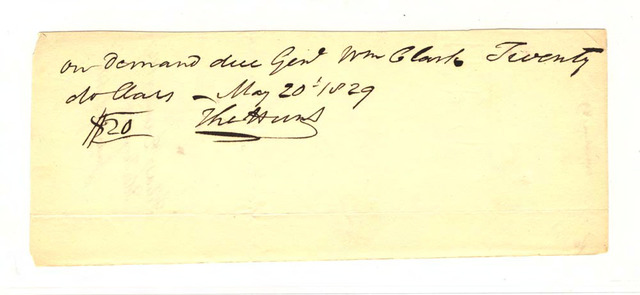 on Demand due Genl Wm Clark Twenty
dollars - May 20th 1829
$20 Tho Hunt